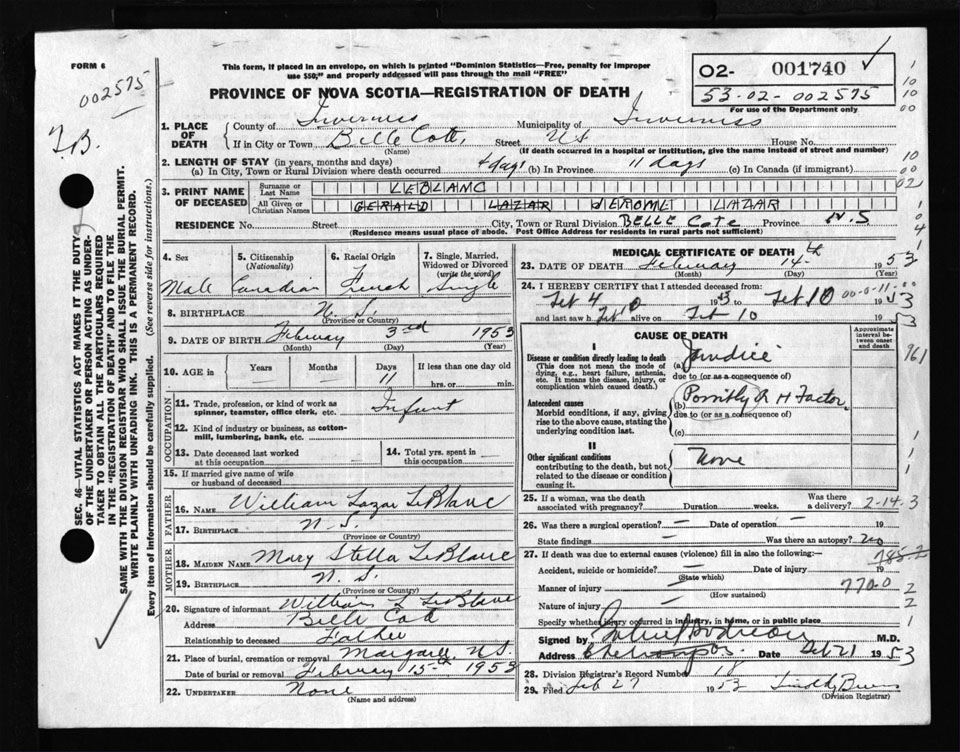 FORM 6
002575
This form, if placed in an envelope, on which is printed "Dominion Statistics—Free, penalty for improper
use $50;" and properly addressed will pass through the mail "FREE"
02- 001740
53-02-002575
For use of the Department only
PROVINCE OF NOVA SCOTIA—REGISTRATION OF DEATH
1. PLACE OF DEATH
County of Inverness Municipality of Inverness
If in City or Town Belle Cote, Street N.S. House No.
(Name) (If death occurred in a hospital or institution, give the name instead of street and number)
2. LENGTH OF STAY (in years, months and days)
(a) In City, Town or Rural Division where death occurred 4 days (b) In Province 11 days (c) In Canada (if immigrant)
3. PRINT NAME OF DECEASED
Surname or Last Name LEBLANC
All Given or Christian Names GERALD LAZAR JEROME LAZAR
RESIDENCE No. Street City, Town or Rural Division BELLE COTE Province N.S
(Residence means usual place of abode. Post Office Address for residents in rural parts not sufficient)
4. Sex
Male
5. Citizenship (Nationality)
Canadian
6. Racial Origin
French
7. Single, Married, Widowed or Divorced (write the word)
Single
8. BIRTHPLACE N.S.
(Province or Country)
9. DATE OF BIRTH February 3rd 1953
(Month) (Day) (Year)
10. AGE in Years Months Days 11 If less than one day old hrs. or min.
OCCUPATION
11. Trade, profession, or kind of work as spinner, teamster, office clerk, etc. Infant
12. Kind of industry or business, as cotton-mill, lumbering, bank, etc.
13. Date deceased last worked at this occupation
14. Total yrs. spent in this occupation
15. If married give name of wife or husband of deceased
FATHER
16. NAME William Lazar LeBlanc
17. BIRTHPLACE N.S.
(Province or Country)
MOTHER
18. MAIDEN NAME Mary Stella LeBlanc
19. BIRTHPLACE N.S.
(Province or Country)
20. Signature of informant William L LeBlanc
Address Belle Cote
Relationship to deceased Father
21. Place of burial, cremation or removal Margaree, N.S.
Date of burial or removal February 15th, 1953
22. UNDERTAKER None
(Name and address)
MEDICAL CERTIFICATE OF DEATH
23. DATE OF DEATH February 14 1953
(Month) (Day) (Year)
24. I HEREBY CERTIFY that I attended deceased from:
Feb 4 1953 to Feb 10 1953
and last saw h alive on Feb 10 1953
CAUSE OF DEATH
Approximate interval between onset and death
I
Disease or condition directly leading to death
(This does not mean the mode of dying, e.g., heart failure, asthenia, etc. It means the disease, injury, or complication which caused death.)
(a) Jaundice
due to (or as a consequence of)
Antecedent causes
Morbid conditions, if any, giving rise to the above cause, stating the underlying condition last.
(b) Possibly R H Factor
due to (or as a consequence of)
(c)
II
Other significant conditions
contributing to the death, but not related to the disease or condition causing it.
None
25. If a woman, was the death associated with pregnancy? Duration weeks. Was there a delivery? 2-14-3
26. Was there a surgical operation? — Date of operation — 19
State findings — Was there an autopsy? No
27. If death was due to external causes (violence) fill in also the following:—
Accident, suicide or homicide? — Date of injury 19
(State which)
Manner of injury — 770-0
(How sustained)
Nature of injury —
Specify whether injury occurred in industry, in home, or in public place
Signed by M.D.
Address Cheticamp Date Feb 21 1953
28. Division Registrar's Record Number 18
29. Filed Feb 27 1953
(Division Registrar)
SEC. 46—VITAL STATISTICS ACT MAKES IT THE DUTY
OF THE UNDERTAKER OR PERSON ACTING AS UNDER-
TAKER TO OBTAIN ALL THE PARTICULARS REQUIRED
IN THE "REGISTRATION OF DEATH" AND TO FILE THE
SAME WITH THE DIVISION REGISTRAR WHO SHALL ISSUE THE BURIAL PERMIT.
WRITE PLAINLY WITH UNFADING INK. THIS IS A PERMANENT RECORD.
Every item of information should be carefully supplied. (See reverse side for instructions.)